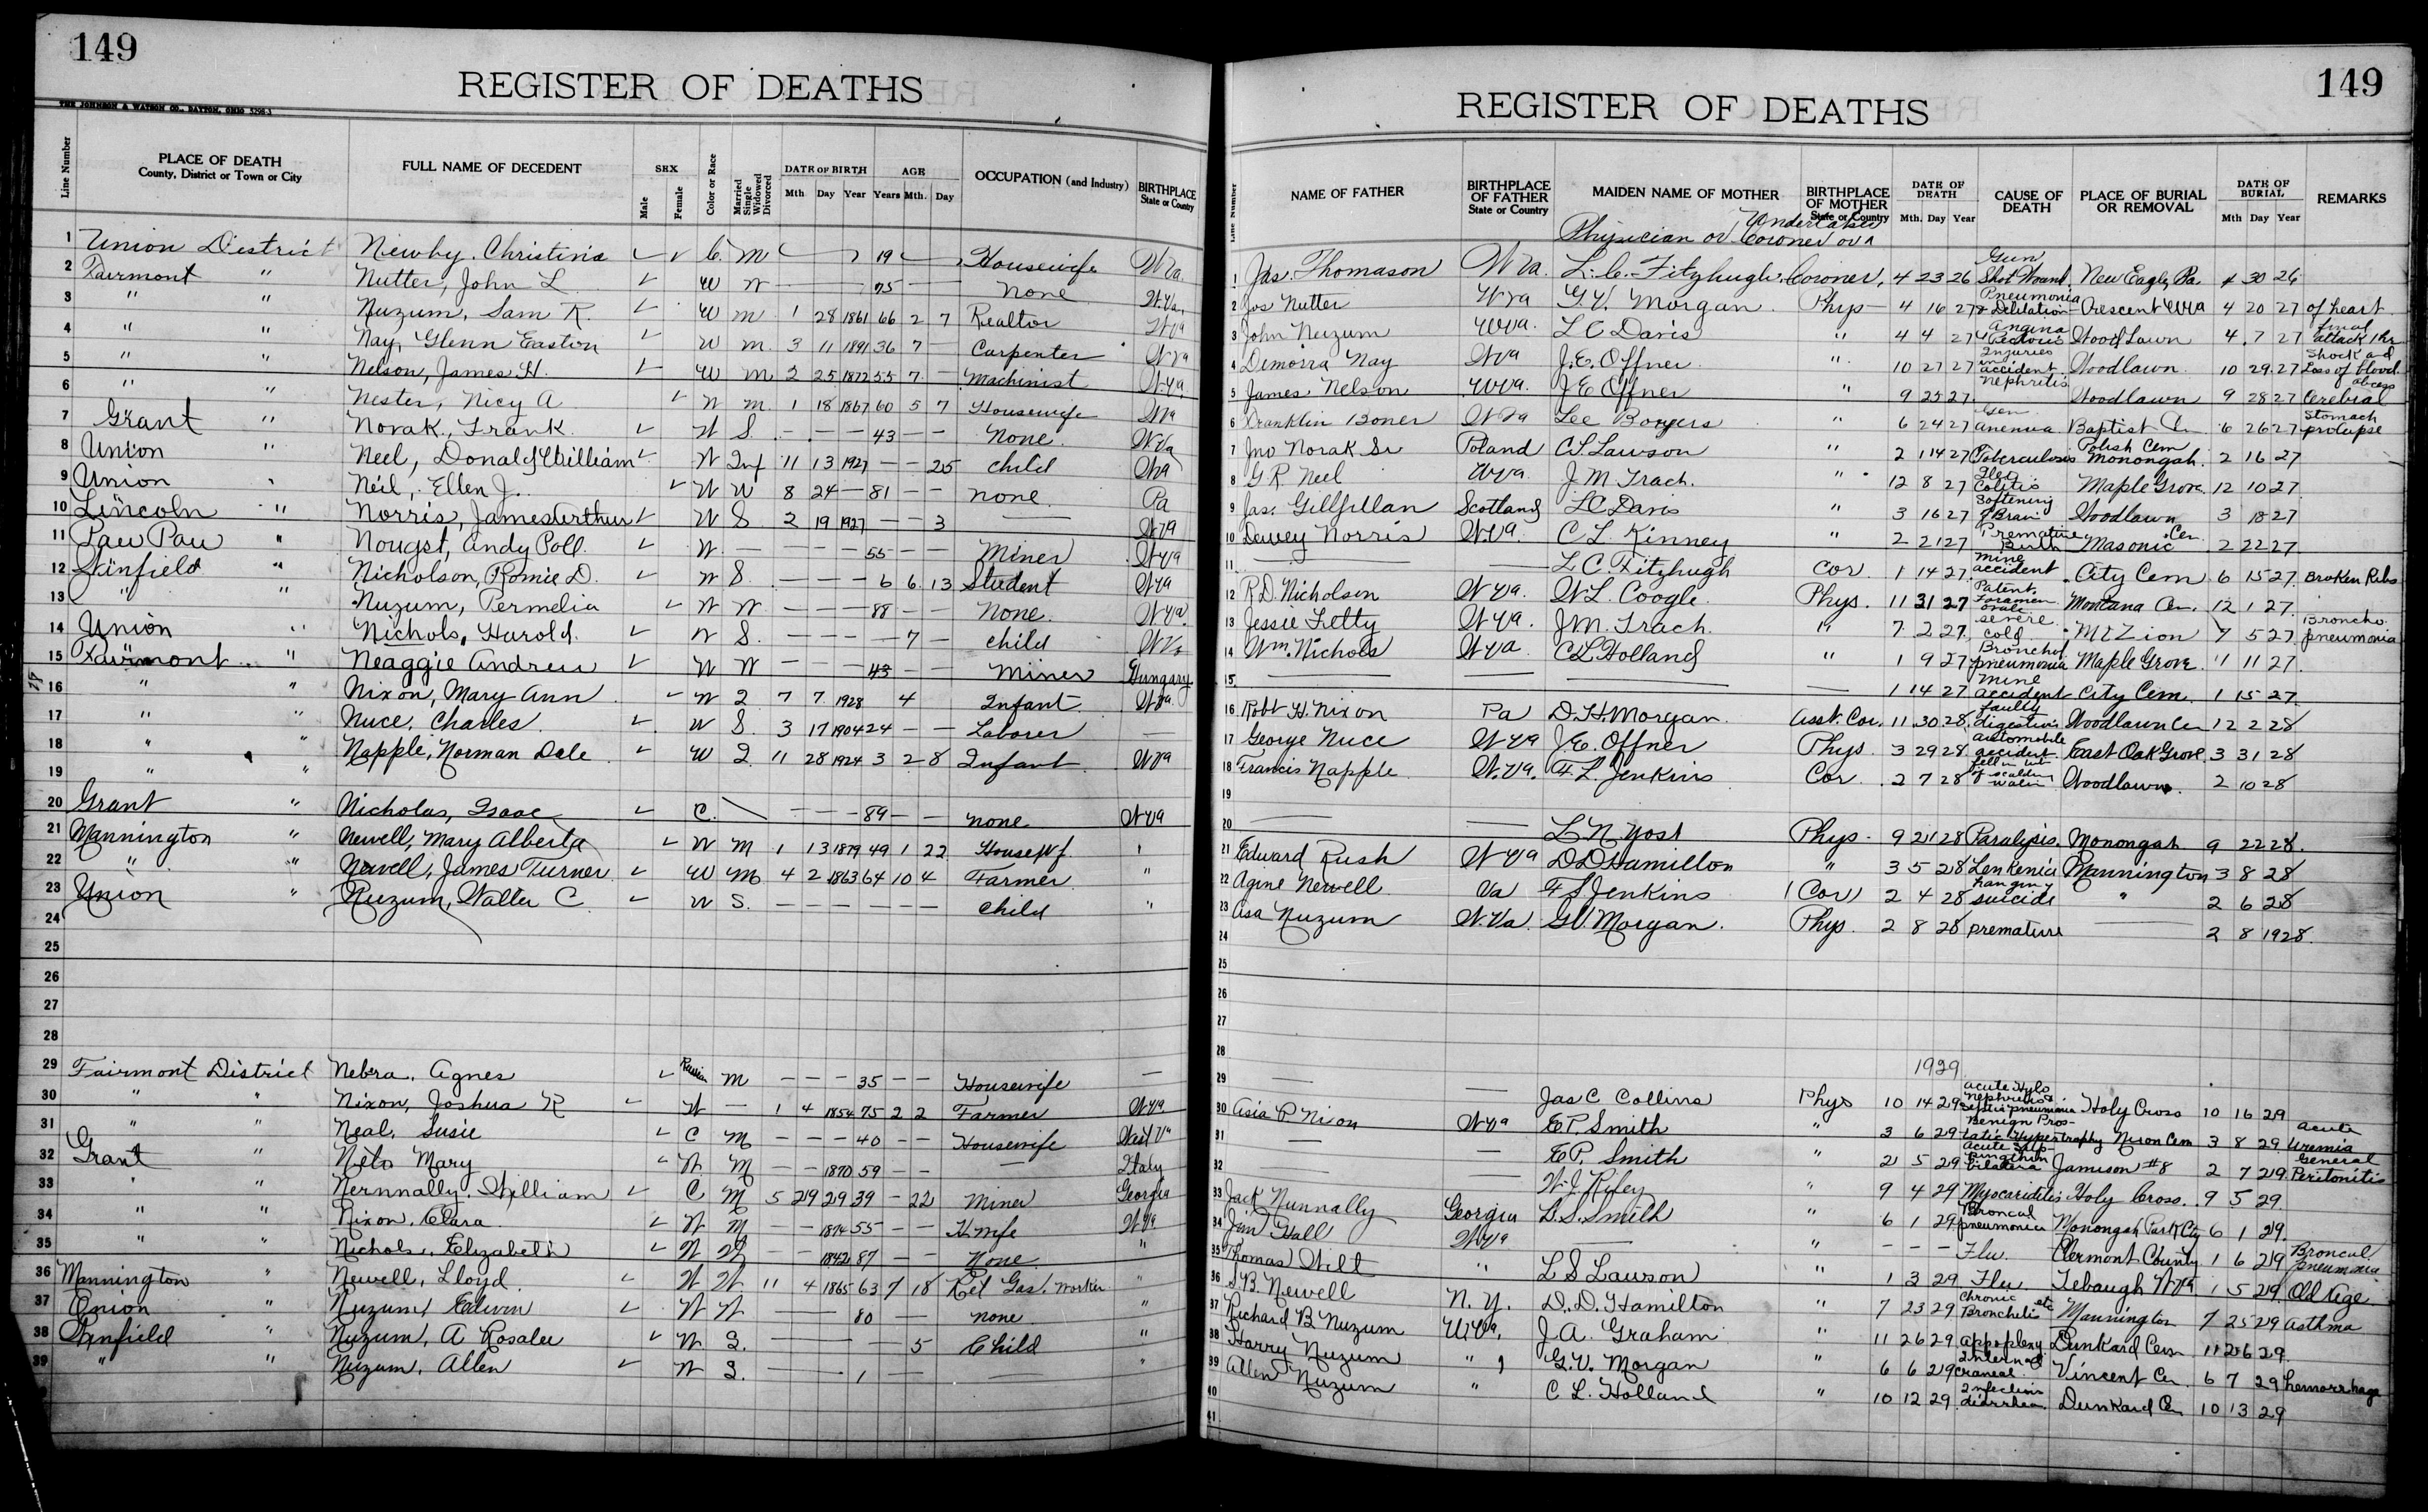 149
REGISTER OF DEATHS
THE JOHNSON & WATSON CO., DAYTON, OHIO
Line Number PLACE OF DEATH County, District or Town or City FULL NAME OF DECEDENT SEX Male Female Color or Race Married Single Widowed Divorced DATE OF BIRTH Mth. Day Year AGE Years Mth. Day OCCUPATION (and Industry) BIRTHPLACE State or Country
1 Union District Newby, Christina C. M 19 Housewife W Va.
2 Fairmont " Nutter, John L. W W 75 none W.Va.
3 " " Nuzum, Sam R. W M 1 28 1861 66 2 7 Realtor W Va
4 " " Nay, Glenn Easton W M. 3 11 1891 36 7 — Carpenter W Va
5 " " Nelson, James H. W M 2 25 1872 55 7 — Machinist W.Va.
6 " " Nester, Nicy A W M. 1 18 1867 60 5 7 Housewife W Va
7 Grant " Novak, Frank W S. — — — 43 — — None. W.Va
8 Union " Neel, Donald William W Inf 11 13 1927 — — 25 child W Va
9 Union Neil, Ellen J. W W 8 24 — 81 — — none Pa
10 Lincoln " Norris, James Arthur W S 2 19 1927 — — 3 — W Va
11 Paw Paw " Nougst, Andy Poll. W. — — — — 55 — — Miner W Va
12 Winfield " Nicholson, Romie D. W S. — — — 6 6 13 Student W Va
13 " " Nuzum, Permelia W W — — — 88 — — None. W.Va.
14 Union " Nichols, Harold. W S. — — — — 7 — child W Va
15 Fairmont " Neaggie Andrew W W — — 43 — — Miner Hungary
16 " " Nixon, Mary Ann W 7 7 1928 4 Infant W Va.
17 " " Nuce, Charles. W S. 3 17 1904 24 — — Laborer —
18 " " Napple, Norman Dale W 11 28 1924 3 2 8 Infant W Va
19 " "
20 Grant " Nicholas, Isaac C. — — — 89 — — none W Va
21 Mannington " Newell, Mary Alberta W M 1 13 1879 49 1 22 Housewf.
22 " " Newell, James Turner W M 4 2 1863 64 10 4 Farmer "
23 Union " Nuzum, Walter C. W S. — — — — — — child "
24
25
26
27
28
29 Fairmont District Nebra, Agnes Russian M — — — 35 — — Housewife —
30 " " Nixon, Joshua R W — 1 4 1854 75 2 2 Farmer W Va
31 " " Neal, Susie C M — — — 40 — — Housewife West Va
32 Grant " Neto Mary W. M — — 1870 59 — — — Italy
33 " " Nernnally, William C M 5 29 39 — 22 Miner Georgia
34 " " Nixon, Clara W M — — 1874 55 — — H wife W Va
35 " " Nichols, Elizabeth W W — — 1842 87 — None "
36 Mannington " Newell, Lloyd W W 11 4 1865 63 7 18 Ret Gas. worker "
37 Union " Nuzum, Edwin W W — — 80 — none "
38 Winfield " Nuzum, A Rosalee W S. — — — 5 Child "
39 " " Nuzum, Allen W S. — — 1 — — "
149
REGISTER OF DEATHS
Line Number NAME OF FATHER BIRTHPLACE OF FATHER State or Country MAIDEN NAME OF MOTHER BIRTHPLACE OF MOTHER State or Country DATE OF DEATH Mth. Day Year CAUSE OF DEATH PLACE OF BURIAL OR REMOVAL DATE OF BURIAL Mth Day Year REMARKS
Physician or Coroner or Undertaker
1 Jas. Thomason W Va. L. C. Fitzhugh. Coroner. 4 23 26 Gun Shot Wound New Eagle, Pa. 4 30 26
2 Jos Nutter W Va G.V. Morgan Phys — 4 16 27 Pneumonia & Dilelation Crescent W Va 4 20 27 of heart
3 John Nuzum W Va. L C Davis " 4 4 27 Angina Pectoris Wood Lawn 4. 7 27 final attack 1 hr
4 Dimorra Nay W Va J. E. Offner " 10 27 27 Injuries in accident Woodlawn 10 29 27 Shock and Loss of blood
5 James Nelson W Va. J E Offner " 9 25 27 nephritis Woodlawn 9 28 27 Cerebral abcess
6 Franklin Boner W Va Lee Boyers " 6 24 27 Gen anemia Baptist Cem 6 26 27 Stomach prolapse
7 Jno Novak Sr Poland C. L. Lawson " 2 14 27 Tuberculosis Polish Cem Monongah. 2 16 27
8 G R Neel W Va. J M Trach. " 12 8 27 Ileo Colitis Maple Grove 12 10 27
9 Jas. Gillfillan Scotland L C Davis " 3 16 27 Softening of Brain Woodlawn 3 18 27
10 Dewey Norris W. Va. C L. Kinney " 2 21 27 Premature Birth Masonic Cem 2 22 27
11 — — L C Fitzhugh Cor 1 14 27 mine accident City Cem 6 15 27 Broken Ribs
12 R.D. Nicholson W Va. W L. Coogle. Phys. 11 31 27 Patent Foramen ovale Montana Cem. 12 1 27.
13 Jessie Fetty W Va. J M. Trach. " 7 2 27 severe cold Mt Zion 7 5 27 Broncho. pneumonia
14 Wm. Nichols W Va C L Holland " 1 9 27 Bronchol pneumonia Maple Grove. 1 11 27.
15 — — — — 1 14 27 mine accident City Cem. 1 15 27.
16 Robt H. Nixon Pa D. H. Morgan. Asst. Cor. 11 30 28 faulty digestion Woodlawn Cem 12 2 28
17 George Nuce W Va J. E. Offner Phys 3 29 28 automobile accident East Oak Grove 3 31 28
18 Francis Napple W. Va. F L. Jenkins Cor. 2 7 28 fell in tub of scalding water Woodlawn. 2 10 28
19
20 — — L N. Yost Phys. 9 21 28 Paralysis. Monongah 9 22 28.
21 Edward Rush W Va D. D. Hamilton " 3 5 28 Lenkenia Mannington 3 8 28
22 Agine Newell Va F S Jenkins (Cor) 2 4 28 hanging suicide " 2 6 28
23 Asa Nuzum W. Va. G.V. Morgan. Phys. 2 8 28 premature — 2 8 1928.
24
25
26
27
28
1929
29 — — Jas C Collins Phys 10 14 29 acute nephritis & septic pneumonia Holy Cross 10 16 29
30 Asia P Nixon W Va E. P. Smith " 3 6 29 Benign Prostatic Hypertrophy Nixon Cem 3 8 29 acute Uremia
31 — — E. P. Smith " 2 5 29 acute bilateral Jamison #8 2 7 29 General Peritonitis
32 — W. J. Riley " 9 4 29 Myocarditis Holy Cross. 9 5 29.
33 Jack Nunnally Georgia L. S. Smith " 6 1 29 Broncal pneumonia Monongah 6 1 29.
34 Jim Hall W Va — " — — — Flu. Clermont County 1 6 29 Broncal pneumonia
35 Thomas Wilt " L S Lawson " 1 3 29 Flu Tebaugh W Va 1 5 29 Old Age
36 S B. Newell N. Y. D. D. Hamilton " 7 23 29 Chronic Bronchitis etc Mannington 7 25 29 Asthma
37 Richard B Nuzum W. Va. J A. Graham " 11 26 29 Appoplexy Dunkard Cem 11 26 29.
38 Harry Nuzum " G. V. Morgan " 6 6 29 Internal craneal Vincent Cem. 6 7 29 hemorrhage
39 Allen Nuzum " C L. Holland " 10 12 29 Infectious diarrhea Dunkard Cem 10 13 29
40
41